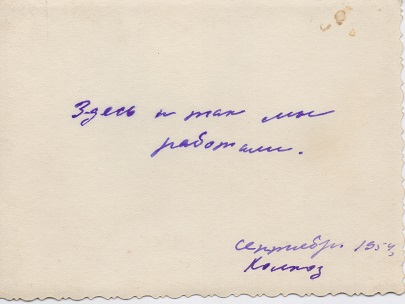 Здесь и так мы
работали.
сентябрь 1954
Колхоз